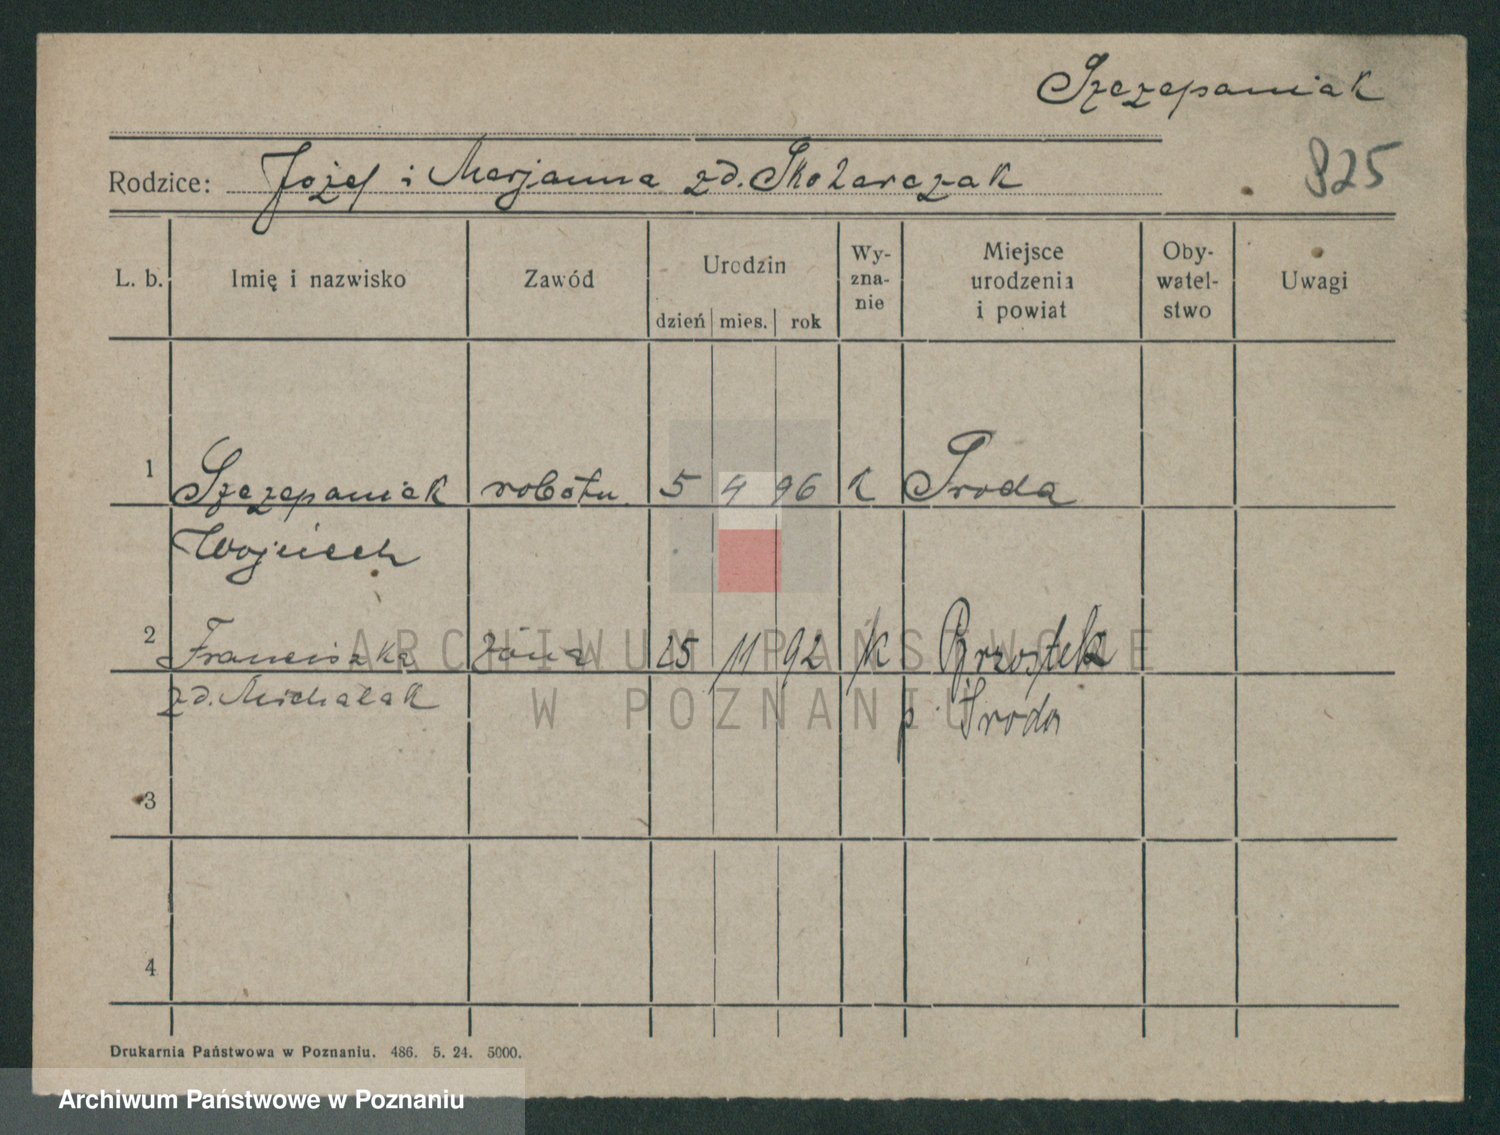 Szczepaniak
825
Rodzice: Józef i Marjanna zd. Skotarczak
L. b. Imię i nazwisko Zawód Urodzin dzień mies. rok Wy-zna-nie Miejsce urodzenia i powiat Oby-watel-stwo Uwagi
1 Szczepaniak robotn. 5 4 96 k Środa
Wojciech
2 Franciszka żona 25 11 92 k Brzostek
zd. Michalak p. Środa
3
4
ARCHIWUM PAŃSTWOWE
W POZNANIU
Drukarnia Państwowa w Poznaniu. 486. 5. 24. 5000.
Archiwum Państwowe w Poznaniu